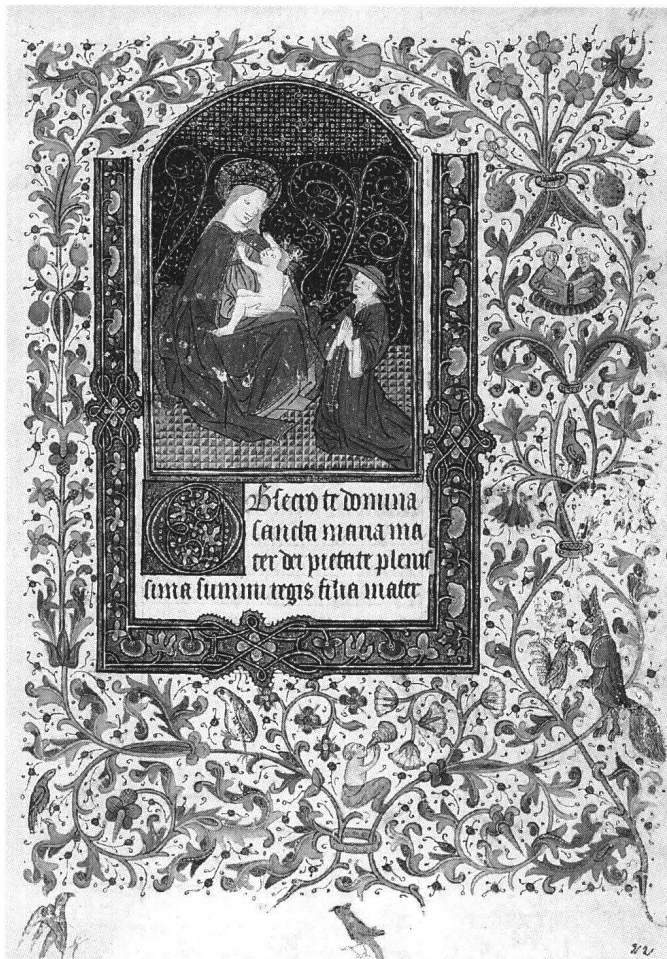 41
Obsecro te domina
sancta maria ma
ter dei pietate plenis
sima summi regis filia mater
22